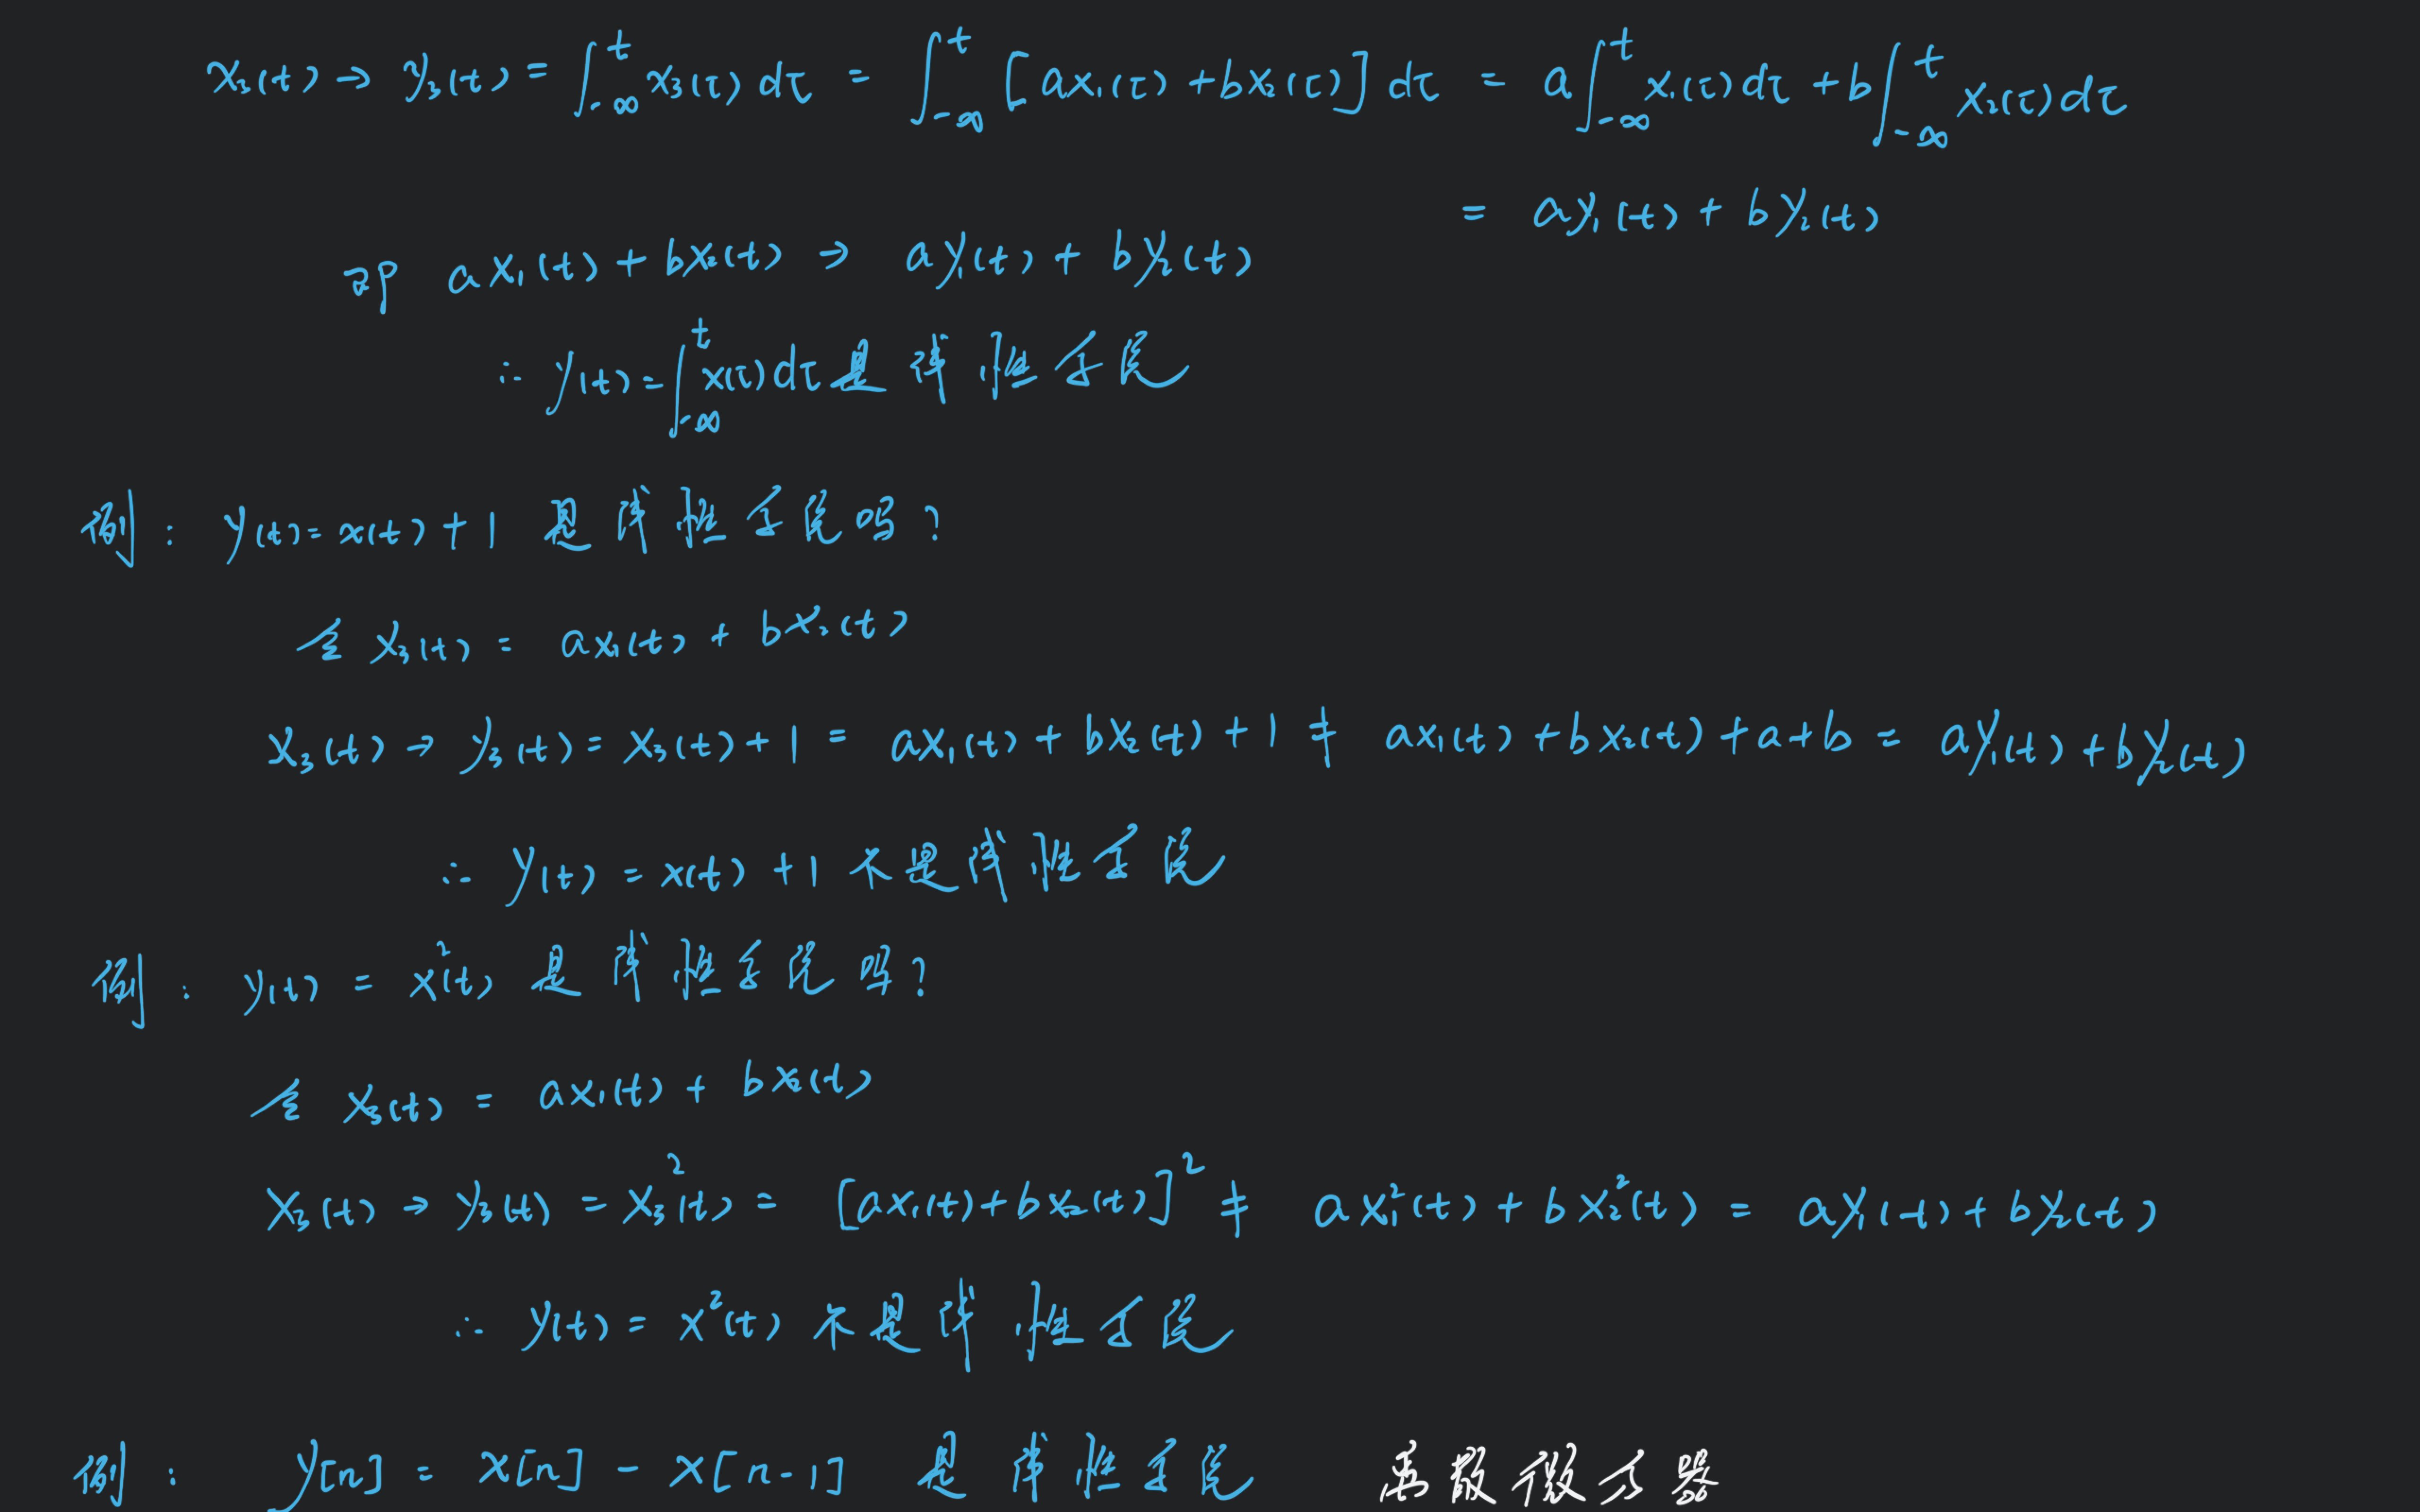 x₃(t) → y₃(t) = ∫_{-∞}^{t} x₃(τ) dτ = ∫_{-∞}^{t} [ax₁(τ) + bx₂(τ)] dτ = a∫_{-∞}^{t} x₁(τ) dτ + b∫_{-∞}^{t} x₂(τ) dτ
= ay₁(t) + by₂(t)
即 ax₁(t) + bx₂(t) → ay₁(t) + by₂(t)
∴ y(t) = ∫_{-∞}^{t} x(τ) dτ 是线性系统
例: y(t) = x(t) + 1 是线性系统吗?
令 x₃(t) = ax₁(t) + bx₂(t)
x₃(t) → y₃(t) = x₃(t) + 1 = ax₁(t) + bx₂(t) + 1 ≠ ax₁(t) + bx₂(t) + a + b = ay₁(t) + by₂(t)
∴ y(t) = x(t) + 1 不是线性系统
例: y(t) = x²(t) 是线性系统吗?
令 x₃(t) = ax₁(t) + bx₂(t)
x₃(t) → y₃(t) = x₃²(t) = [ax₁(t) + bx₂(t)]² ≠ ax₁²(t) + bx₂²(t) = ay₁(t) + by₂(t)
∴ y(t) = x²(t) 不是线性系统
例: y[n] = x[n] - x[n-1] 是线性系统 离散微分器